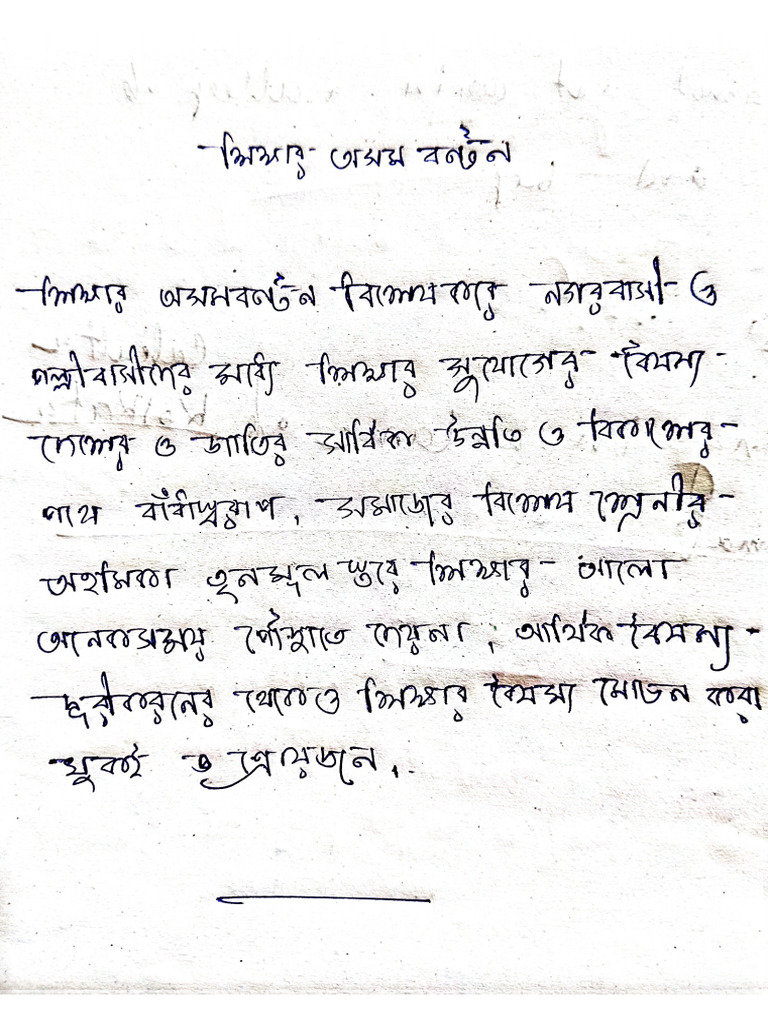 শিক্ষার অসম বন্টন
শিক্ষার অসমবন্টন বিশেষকরে নগরবাসী ও
পল্লীবাসীদের মধ্যে শিক্ষার সুযোগের বৈষম্য
দেশের ও জাতির সার্বিক উন্নতি ও বিকাশের
পথে বাঁধাস্বরূপ, সমাজের বিশেষ শ্রেনীর
অহমিকা তৃনমূল স্তরে শিক্ষার আলো
অনেকসময় পৌঁছাতে দেয়না, আর্থিক বৈষম্য
দূরীকরনের থেকেও শিক্ষার বৈষম্য মোচন করা
খুবই প্রয়োজন,